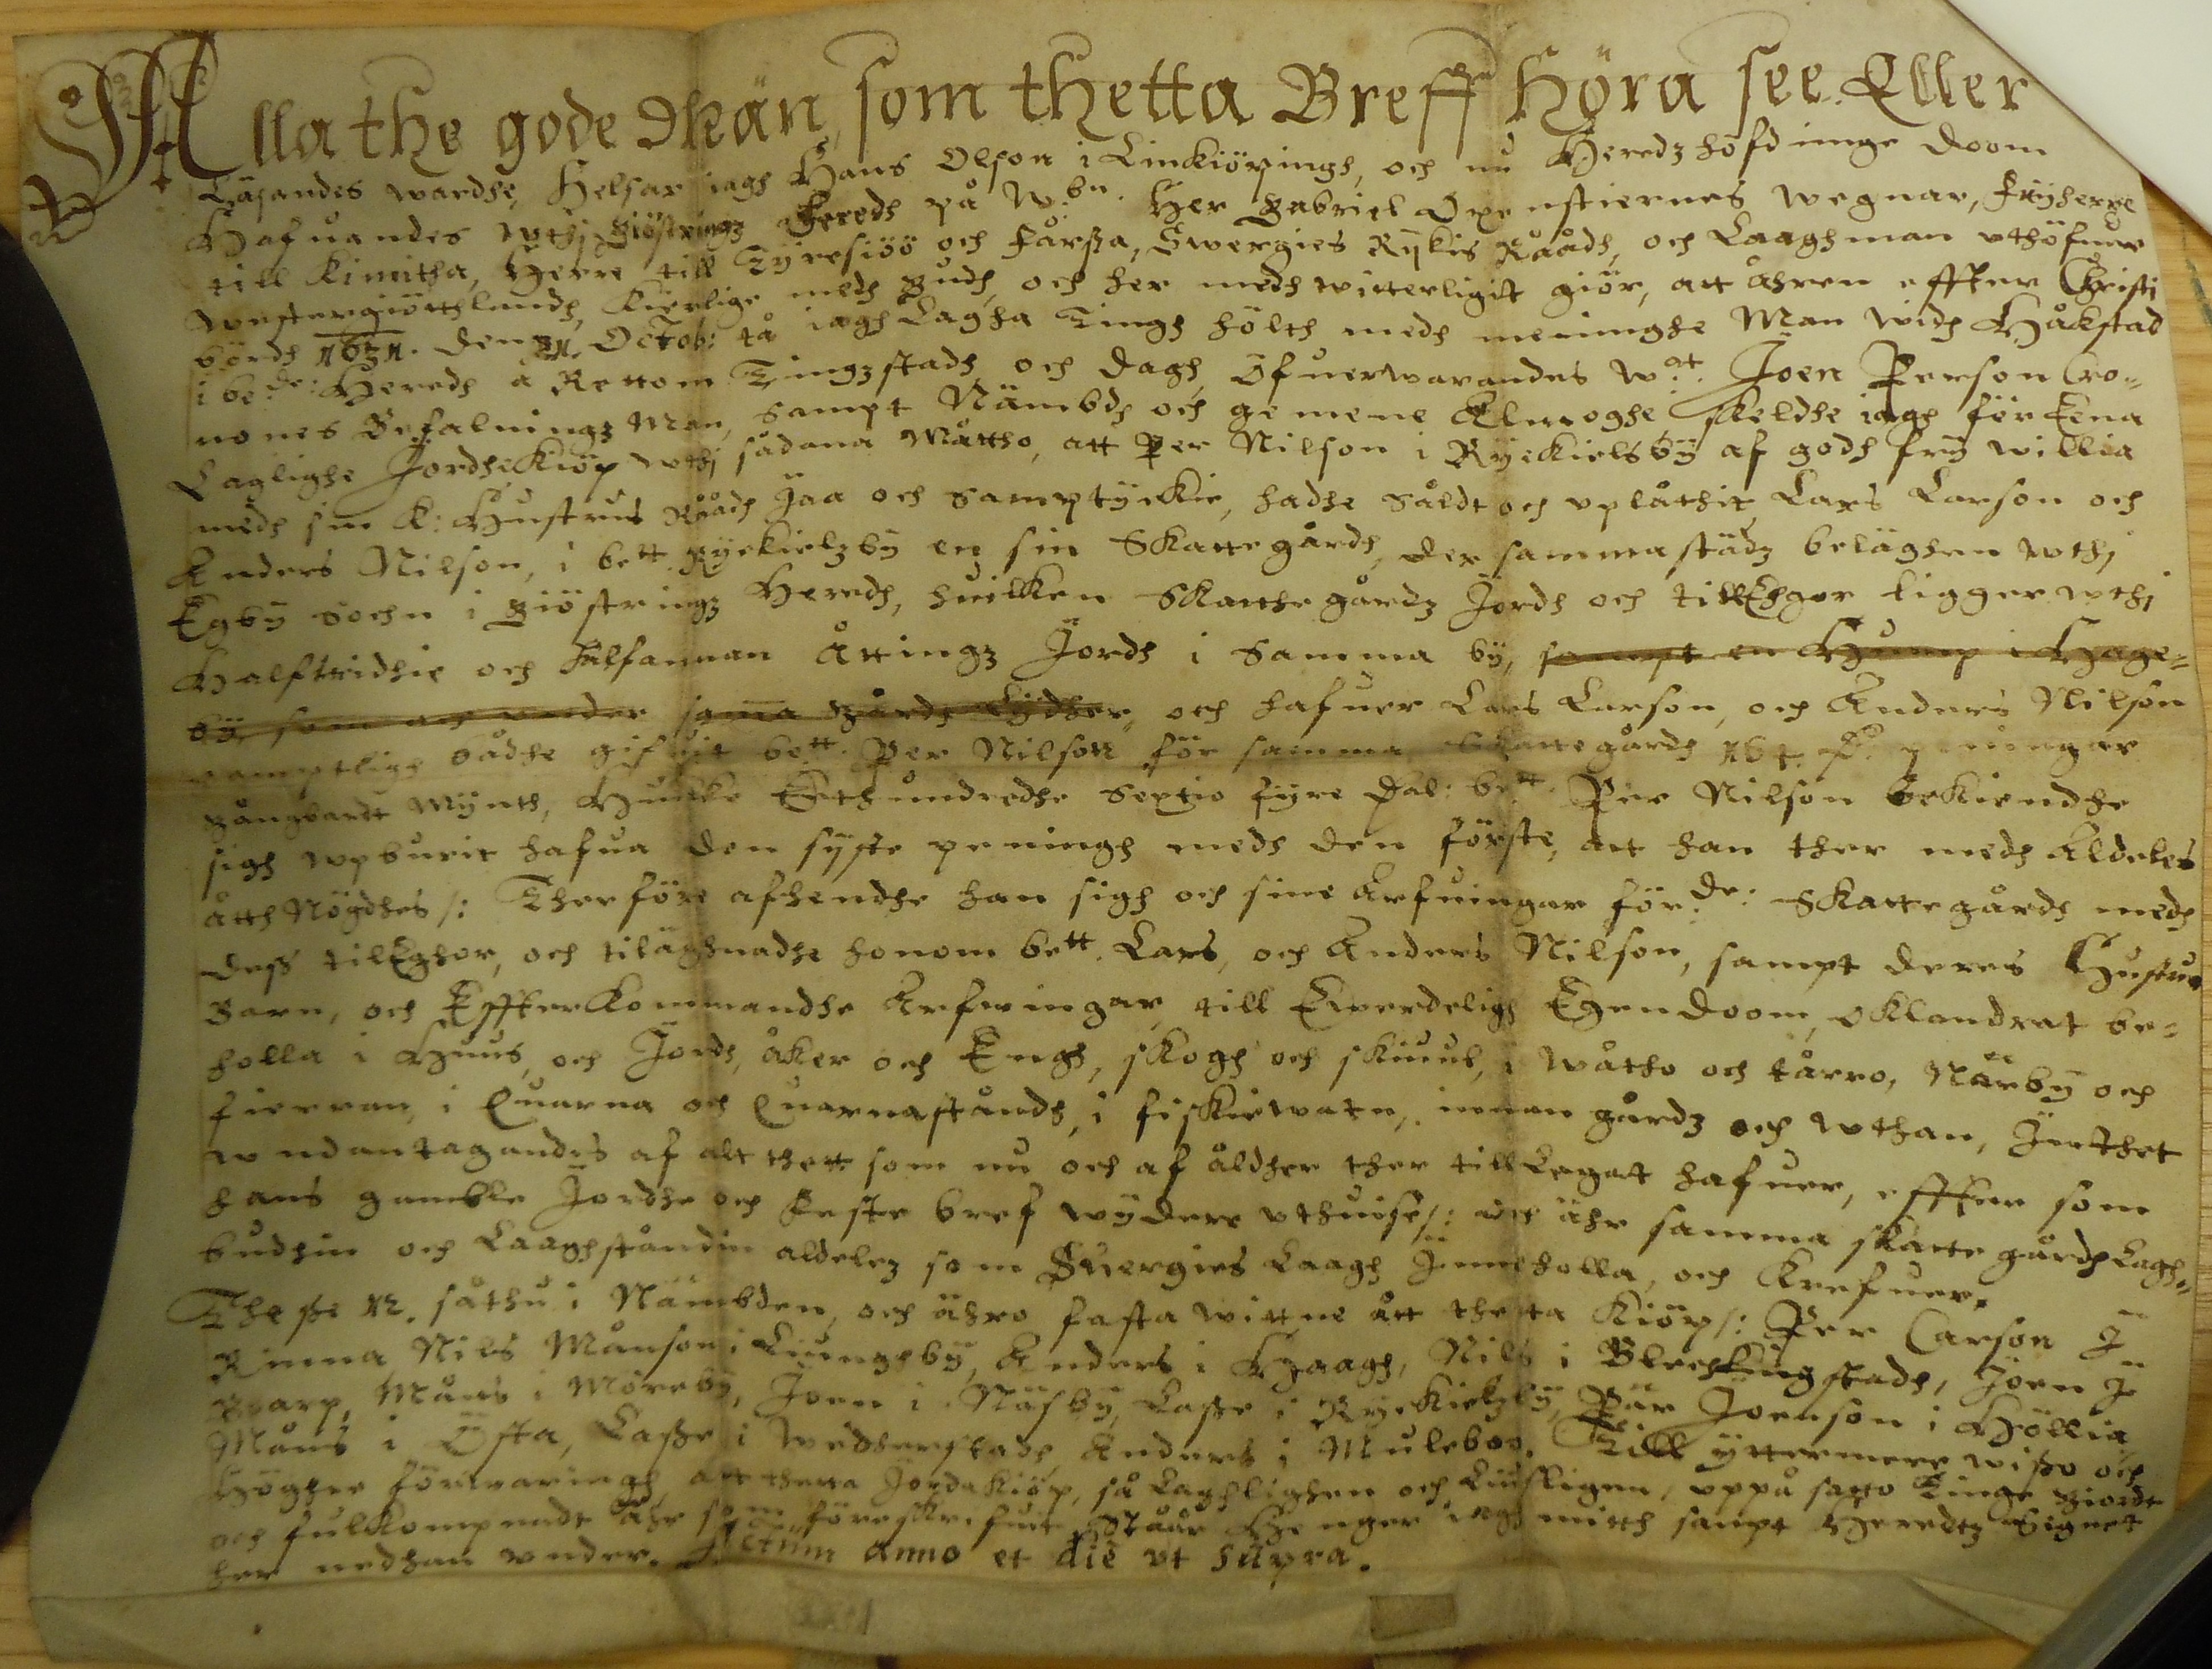 Alla the gode Män, som thetta Breff Höra see Eller
Läsandes wardhe, Helsar iagh Hans Olson i Linkiöpingh, och nu Heredzhöfdinge doom
Hafuandes wthj Giöstringz Heredh på W:bn. Her Gabriel Oxenstiernes wegnar, Fryherre
till Kimitha, Herre till Tyresiöö och Fårssa, Swergies Rykis Råådh, och Laaghman vthöfuer
Westergiöttlandh, Kierlige medh Gudh, och her medh witterligitt giör, att åhren effter Christi
bördh 1631. den 31. Octob: tå iagh Lagha Tingh hölth medh meninghe Man widh Håkstad
i be:de: Heredh å Rettom Tingzstadh och dagh, Öfuerwarandes W:at. Joen Person Cro-
nones Befalningz Man, sampt Nämbdh och gemene Almoghe skeldhe iagh för Eena
Laglighe JordheKiöp wthj sådana Måttho, att Per Nilson i Ryekielsby af godh fry willia
medh sin K: Hustrus Råådh Jaa och Samptyckie, hadhe Såldt och vplåthit Lars Larson och
Anders Nilson, i bett. Ryekielzby en sin Skattegårdh, der sammastädz beläghen wthj
Egby Sochn i Giöstringz Heredh, huilken Skatthegårdz Jordh och tillEhgor ligger wthj
Halftridhie och halfannan Åttingz Jordh i Samma by, sampt en Hump i Hage-
by, som och vnder sama Gårdh Lydher, och hafuer Lars Larson, och Anders Nilson
samptligh bådhe gifuit bett. Per Nilson för samma Skattegårdh 164. D. peningar
Gångbardt Mynth, Huilke Etthundredhe Sextio fyre Dal: bett. Per Nilson beKiendhe
sigh wpburit hafua den syste peningh medh den förste, att han ther medh Aldeles
åtth Nögdhes /: Therföre afhendhe han sigh och sine Arfuingar för:de: Skattegårdh medh
dess tilEghor, och tiläghnadhe honom bett. Lars, och Anders Nilson, sampt deres Hustrur
Barn, och EffterKommandhe Arfwingar, till Ewerdeligh Egendoom, oKlandrat be-
holla i Huus och Jordh, åker och Engh, skogh och skiuul, i wåtho och tårro, Närby och
fierran, i Quarna och Quarnastandh, i fiskiewatn, innan gårdz och wthan, Jnthet
wndantagandes af alt thett som nu och af åldher ther till Legat hafuer, effter som
hans gamble Jordhe och feste bref wydere vthuise /: och ähr samma skatte gårdh Lagh-
budhin och Laaghståndin aldelez som Suergies Laagh Jnneholla, och Krefuer.
Thesse 12. såthu i Nämbden, och ähro fasta wittne åtth thetta Kiöp /: Per Carson J
Rinna, Nils Månson i Liungby, Anders i Haagh, Nils i Blechkingstadh, Joen J
Boarp, Måns i Moreby, Joen i Näsby, Lasse i Ryekielzby, Pär Joenson i Höllia
Måns i Östa, Lasse i Wedherstadh, Anders i Muleboo. Till yttermere wisso och
högher förwaringh, att thetta JordaKiöp, så Laghlighen och Liusligen, vppå satto Tinge giordt
och fulKompnadt ähr som föreskrefuit Står Henger iagh mitth sampt Heredtz Signet
her nedhan vnder. Actum anno et die vt supra.